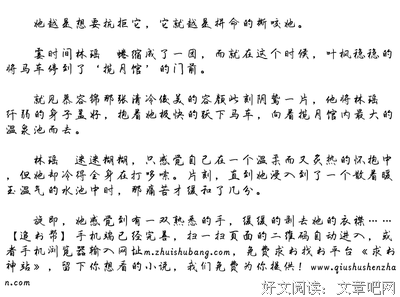 她越是想要抗拒它，它就越是拼命的撕咬她。
霎时间林瑶 蜷缩成了一团，而就在这个时候，叶枫稳稳的
将马车停到了‘揽月馆’的门前。
就见慕容锦那张清冷俊美的容颜此刻阴鸷一片，他将林瑶
纤弱的身子盖好，抱着她极快的跃下马车，向着揽月馆内最大的
温泉池而去。
林瑶 迷迷糊糊，只感觉自己在一个温柔而又炙热的怀抱中
，但她却冷得全身在打哆嗦。片刻，直到她浸入到了一个散着暖
玉温气的水池中时，那痛苦才缓和了几分。
旋即，她感觉到有一双熟悉的手，缓缓的剥去她的衣襟……
【追书帮】手机端已经完善，扫一扫页面的二维码自动进入，或
者手机浏览器输入网址m.zhuishubang.com，免费求书找书平台《求书
神站》，留下你想看的小说，我们免费为你提供！www.qiushushenzha
n.com
好文阅读：文章吧网